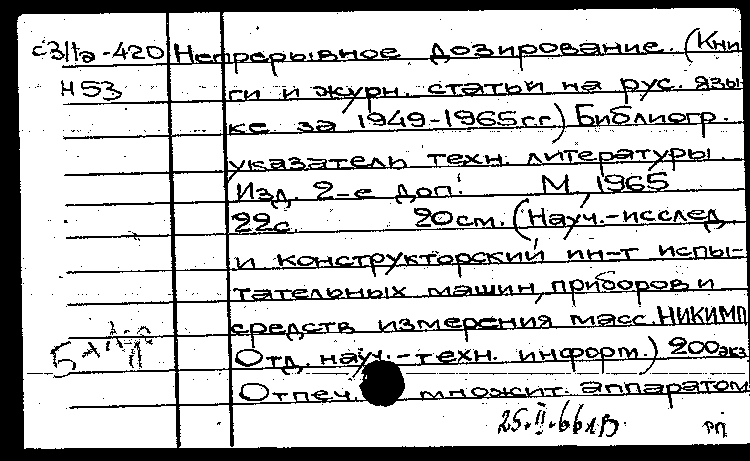 с3/1а-420 Непрерывное дозирование. (Кни
Н53 ги и журн. статьи на рус. язы-
ке за 1949-1965гг) Библиогр.
указатель техн. литературы.
Изд. 2-е доп. М., 1965
22с. 20см. (Науч.-исслед.
и конструкторский ин-т испы-
тательных машин, приборов и
средств измерения масс. НИКИМП
Отд. науч.-техн. информ.) 200экз
Отпеч. множит. аппаратом
25.II.66г.
рп